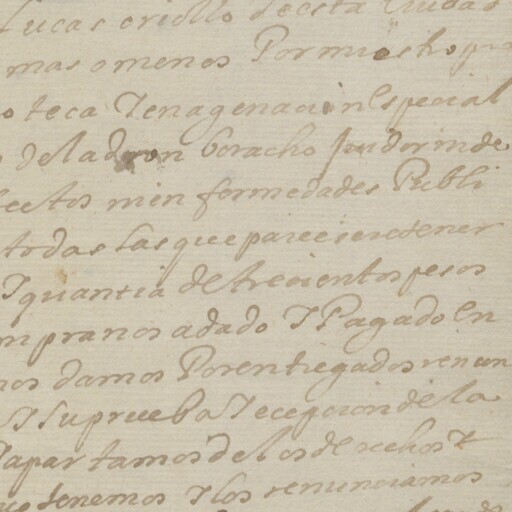 Lucas criollo de esta Ciudad
mas o menos Por mi esho
oteca Y enagenacion Especial
de ladron boracho
fectos ni en formedades Publi
todas las que pareciere tener
Y quantia de trecientos pesos
mpra nos a dado Y Pagado En
nos damos Por entregados renun
Y Su prueba Y ecepcion de la
Y apartamos de los derechos
tenemos Y los renunciamos